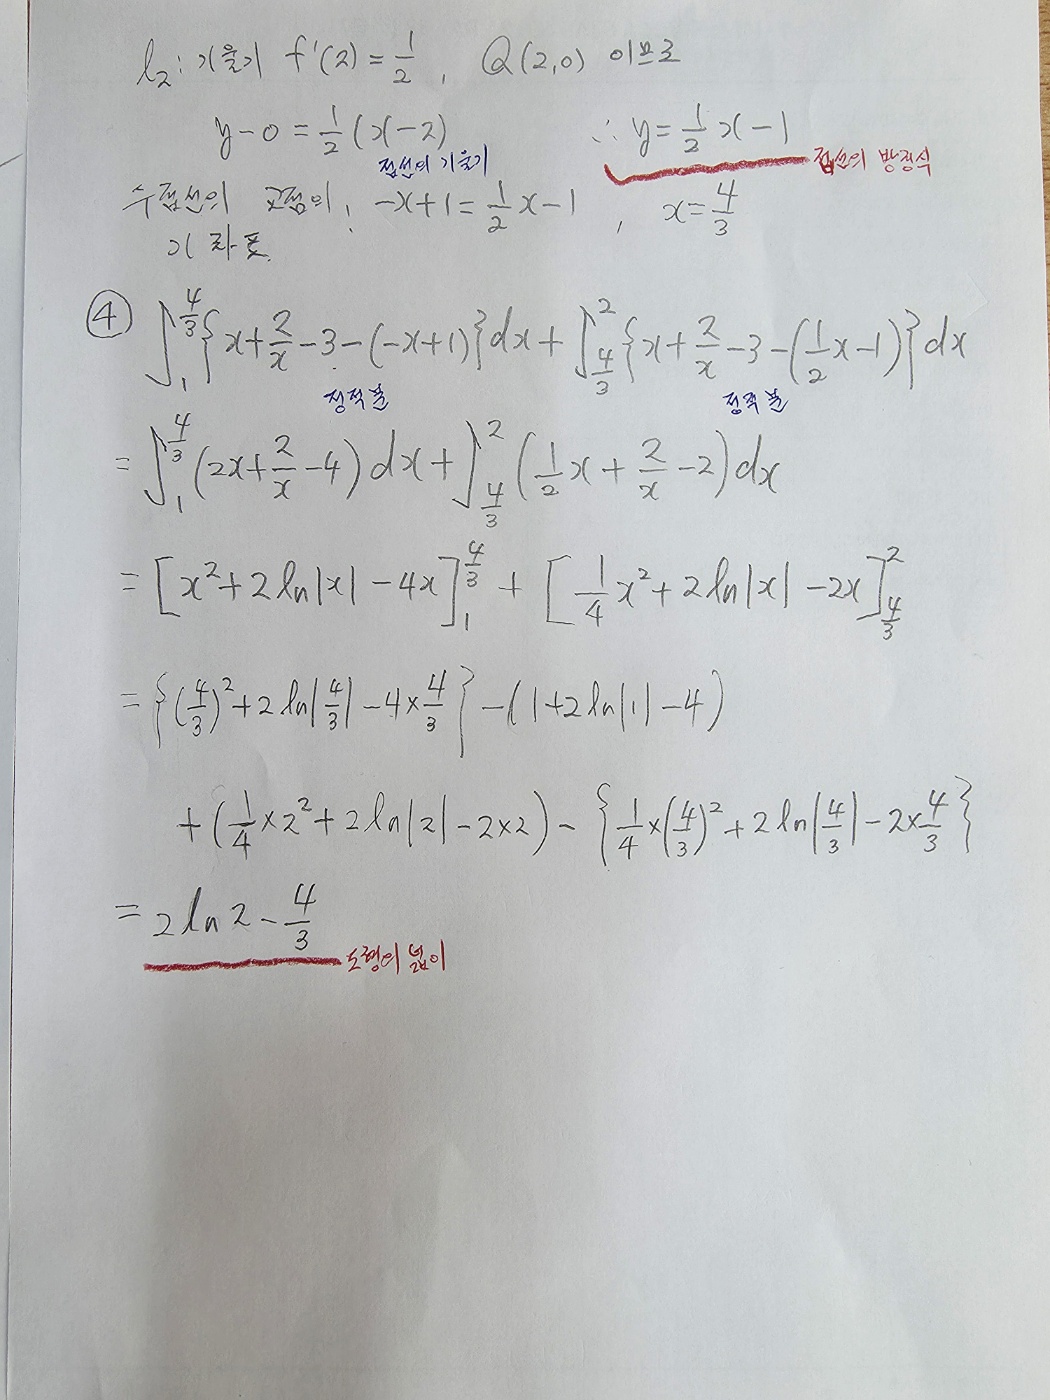 l₂: 기울기 f'(2) = 1/2 , Q(2,0) 이므로
y-0 = 1/2 (x-2) ∴ y = 1/2 x - 1
접선의 기울기 접선의 방정식
두 접선의 교점의, -x+1 = 1/2 x - 1 , x = 4/3
x 좌표
④ ∫₁^(4/3) {x + 2/x - 3 - (-x+1)} dx + ∫_(4/3)^2 {x + 2/x - 3 - (1/2 x - 1)} dx
정적분 정적분
= ∫₁^(4/3) (2x + 2/x - 4) dx + ∫_(4/3)^2 (1/2 x + 2/x - 2) dx
= [x² + 2 ln|x| - 4x]₁^(4/3) + [1/4 x² + 2 ln|x| - 2x]_(4/3)^2
= {(4/3)² + 2 ln|4/3| - 4 × 4/3} - (1 + 2 ln|1| - 4)
+ (1/4 × 2² + 2 ln|2| - 2×2) - {1/4 × (4/3)² + 2 ln|4/3| - 2 × 4/3}
= 2 ln 2 - 4/3
도형의 넓이